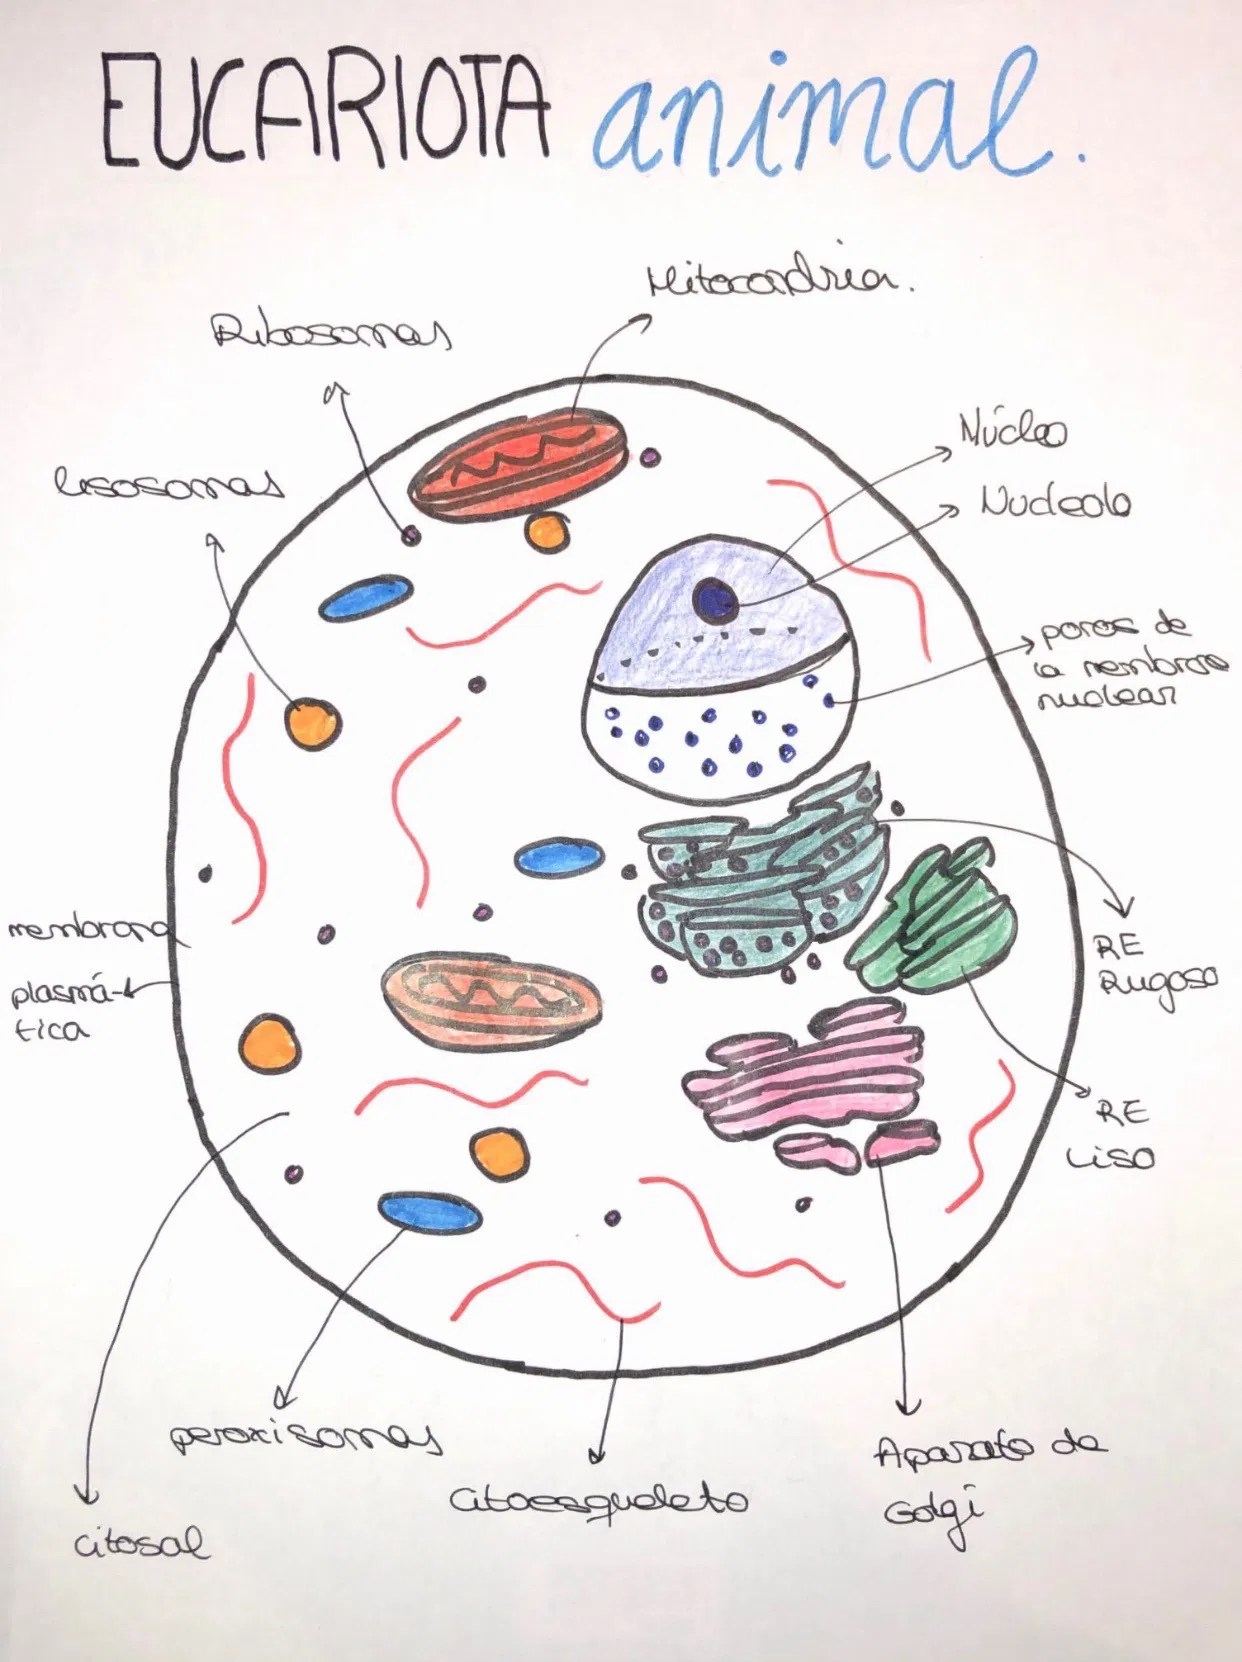 EUCARIOTA animal.
Mitocondria.
Ribosomas
Núcleo
lisosomas
Nucleolo
poros de
la membrana
nuclear
membrana
plasmá-
tica
RE
Rugoso
RE
Liso
peroxisomas
Aparato de
Golgi
citoesqueleto
citosol